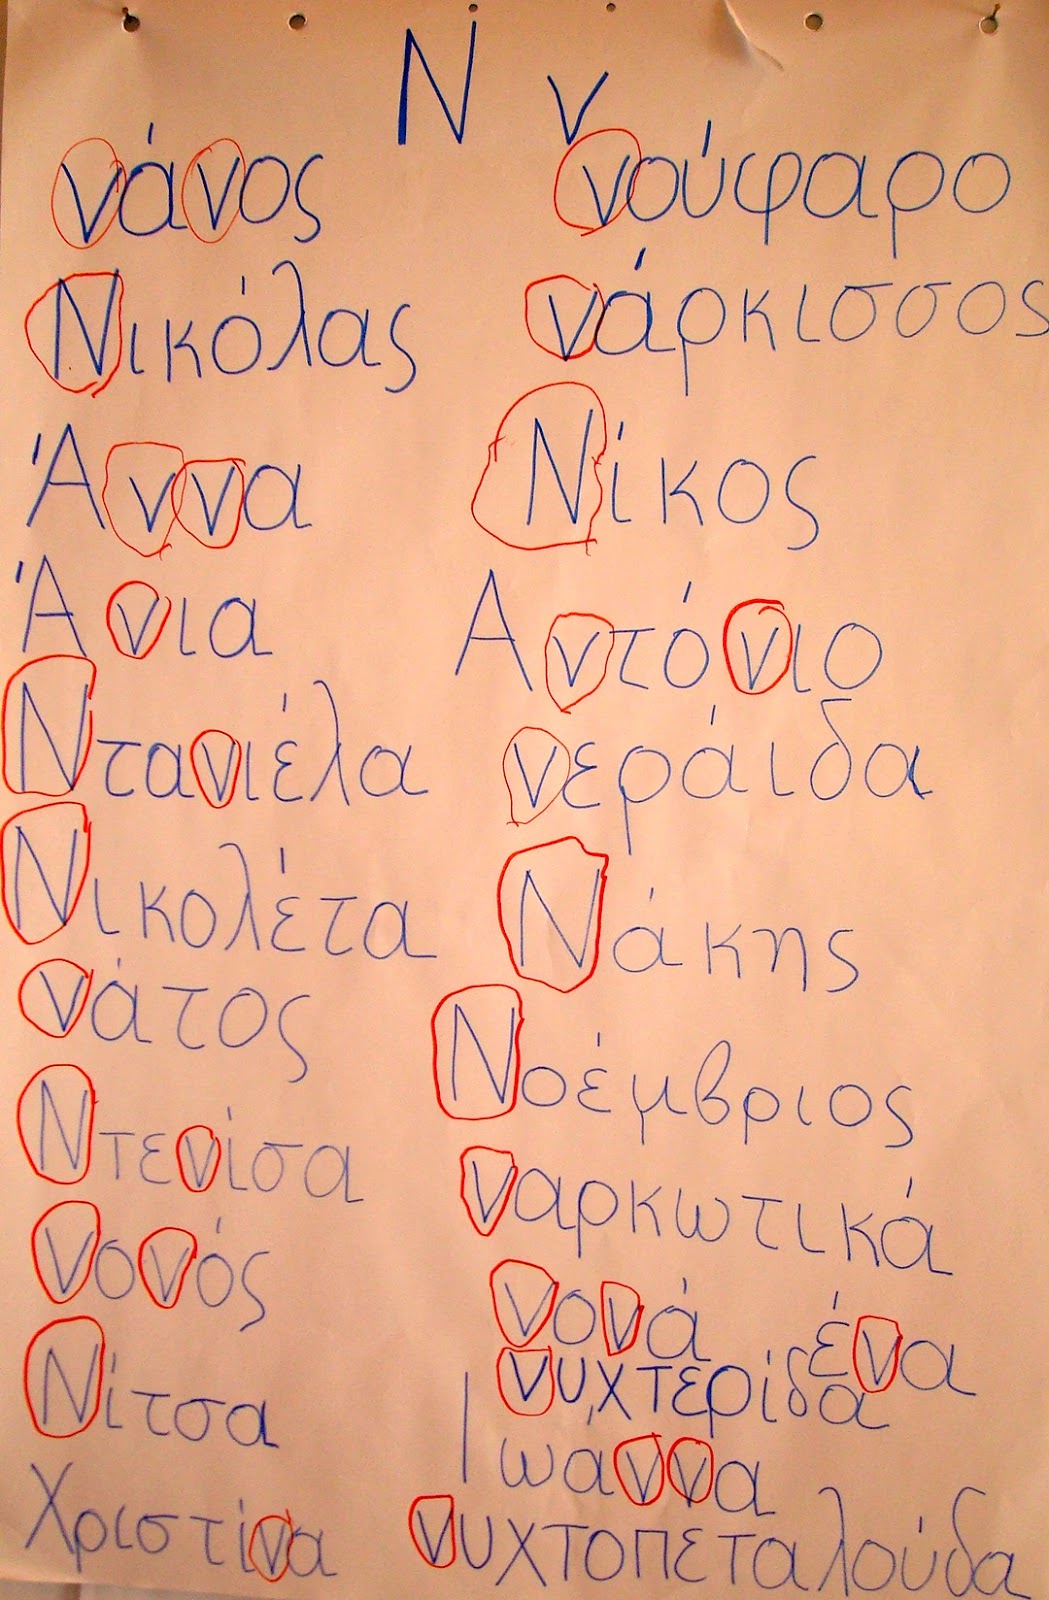 Ν ν
νάνος
Νικόλας
Άννα
Άνια
Ντανιέλα
Νικολέτα
νάτος
Ντενίσα
νονός
Νίτσα
Χριστίνα
νούφαρο
νάρκισσος
Νίκος
Αντόνιο
νεράιδα
Νάκης
Νοέμβριος
ναρκωτικά
νονά ένα
νυχτερίδα
Ιωάννα
νυχτοπεταλούδα